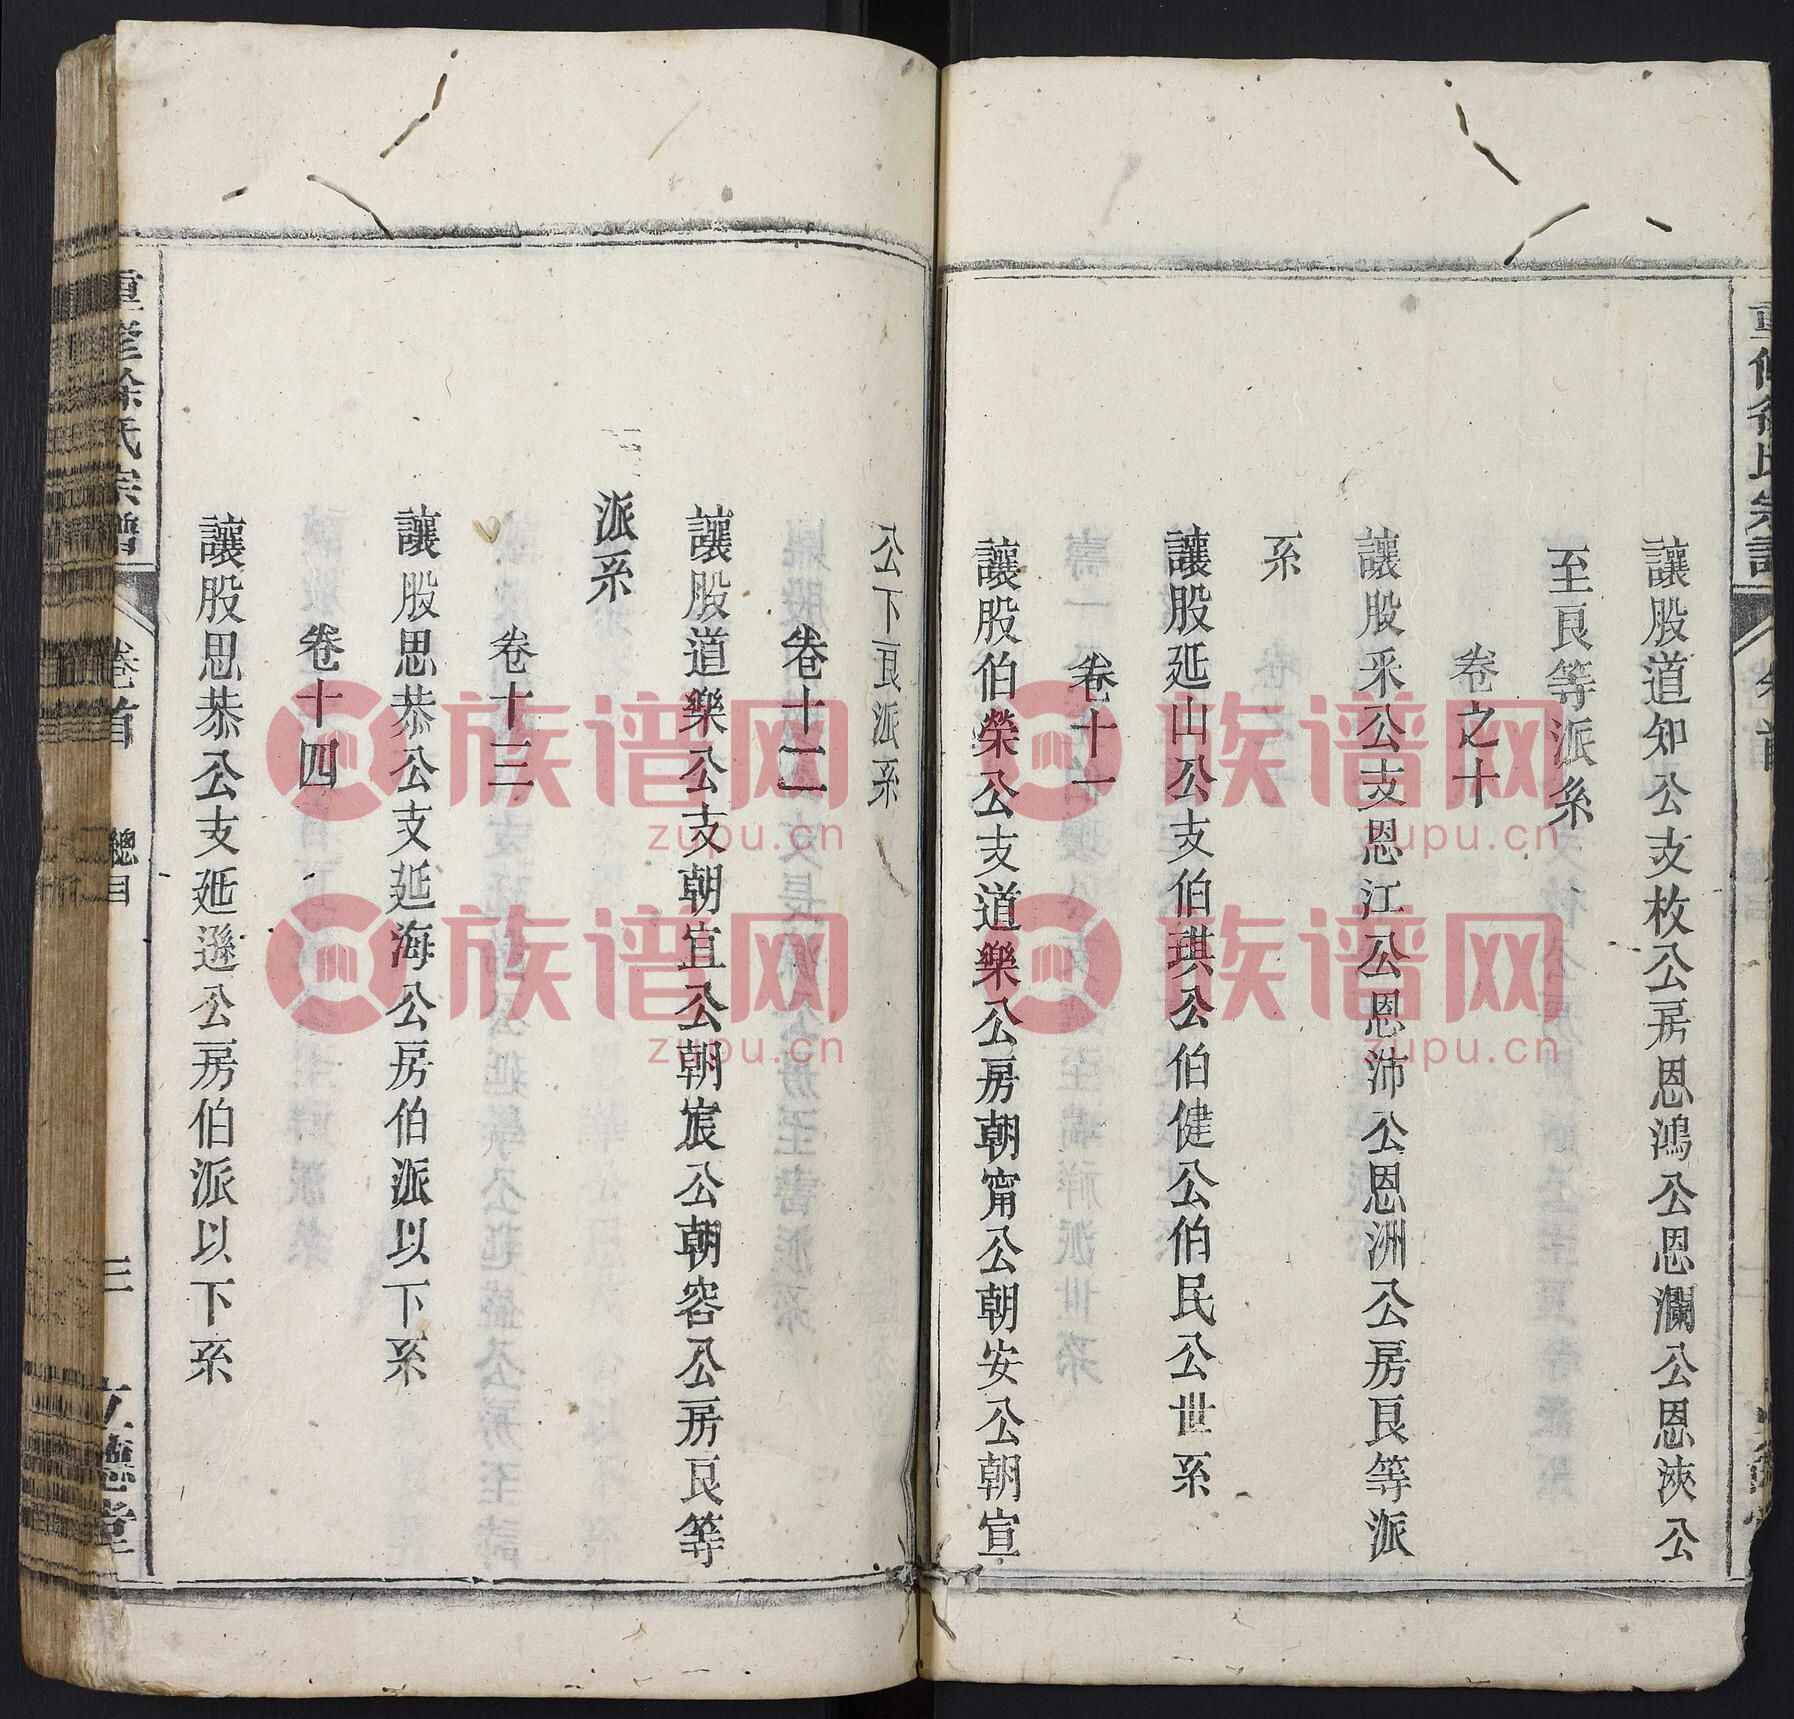 讓股道知公支枚公房恩鴻公恩瀾公恩浹公
至良等派系
卷之十
讓股采公支恩江公恩沛公恩洲公房良等派
系
讓股延山公支伯琪公伯健公伯民公世系
卷十一
讓股伯榮公支道樂公房朝甯公朝安公朝宣
公下良派系
卷十二
讓股道樂公支朝宜公朝宸公朝容公房良等
派系
卷十三
讓股思恭公支延海公房伯派以下系
卷十四
讓股思恭公支延遜公房伯派以下系
徐氏宗譜
卷首
總目
三
堂
族谱网
zupu.cn
族谱网
zupu.cn
族谱网
zupu.cn
族谱网
zupu.cn